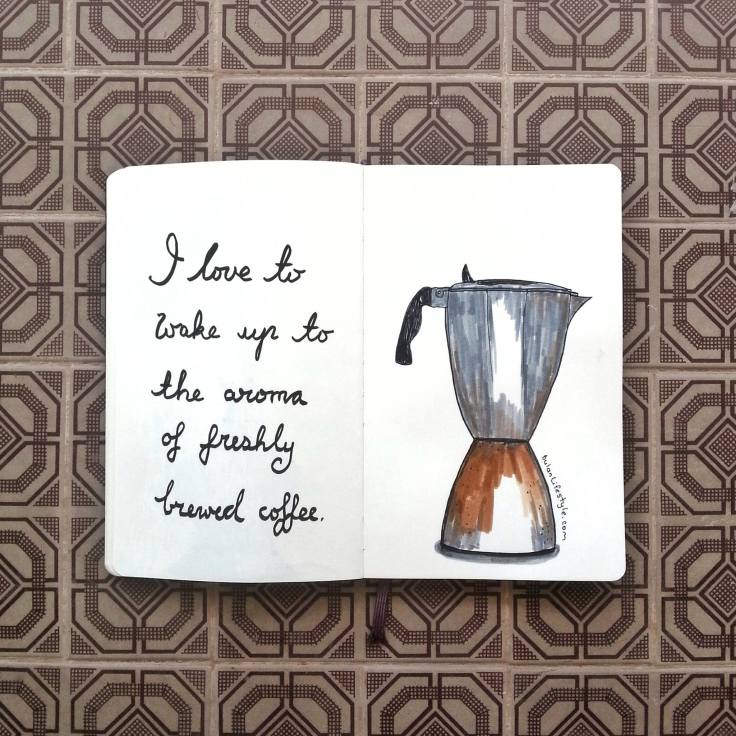 I love to
wake up to
the aroma
of freshly
brewed coffee.
BulanLifestyle.com